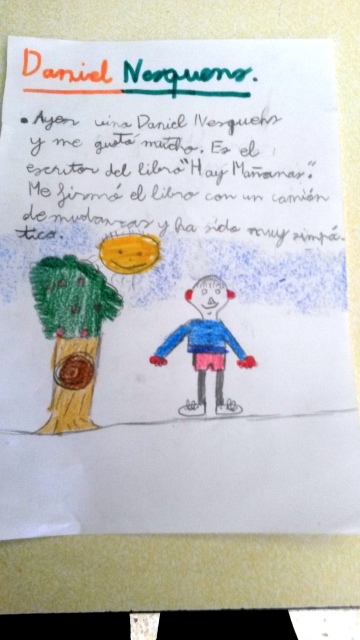 Daniel Nesquens.
• Ayer vino Daniel Nesquens
y me gustó mucho. Es el
escritor del libro "Hay Mañanas".
Me firmó el libro con un camión
de mudanzas y ha sido muy simpá-
tico.